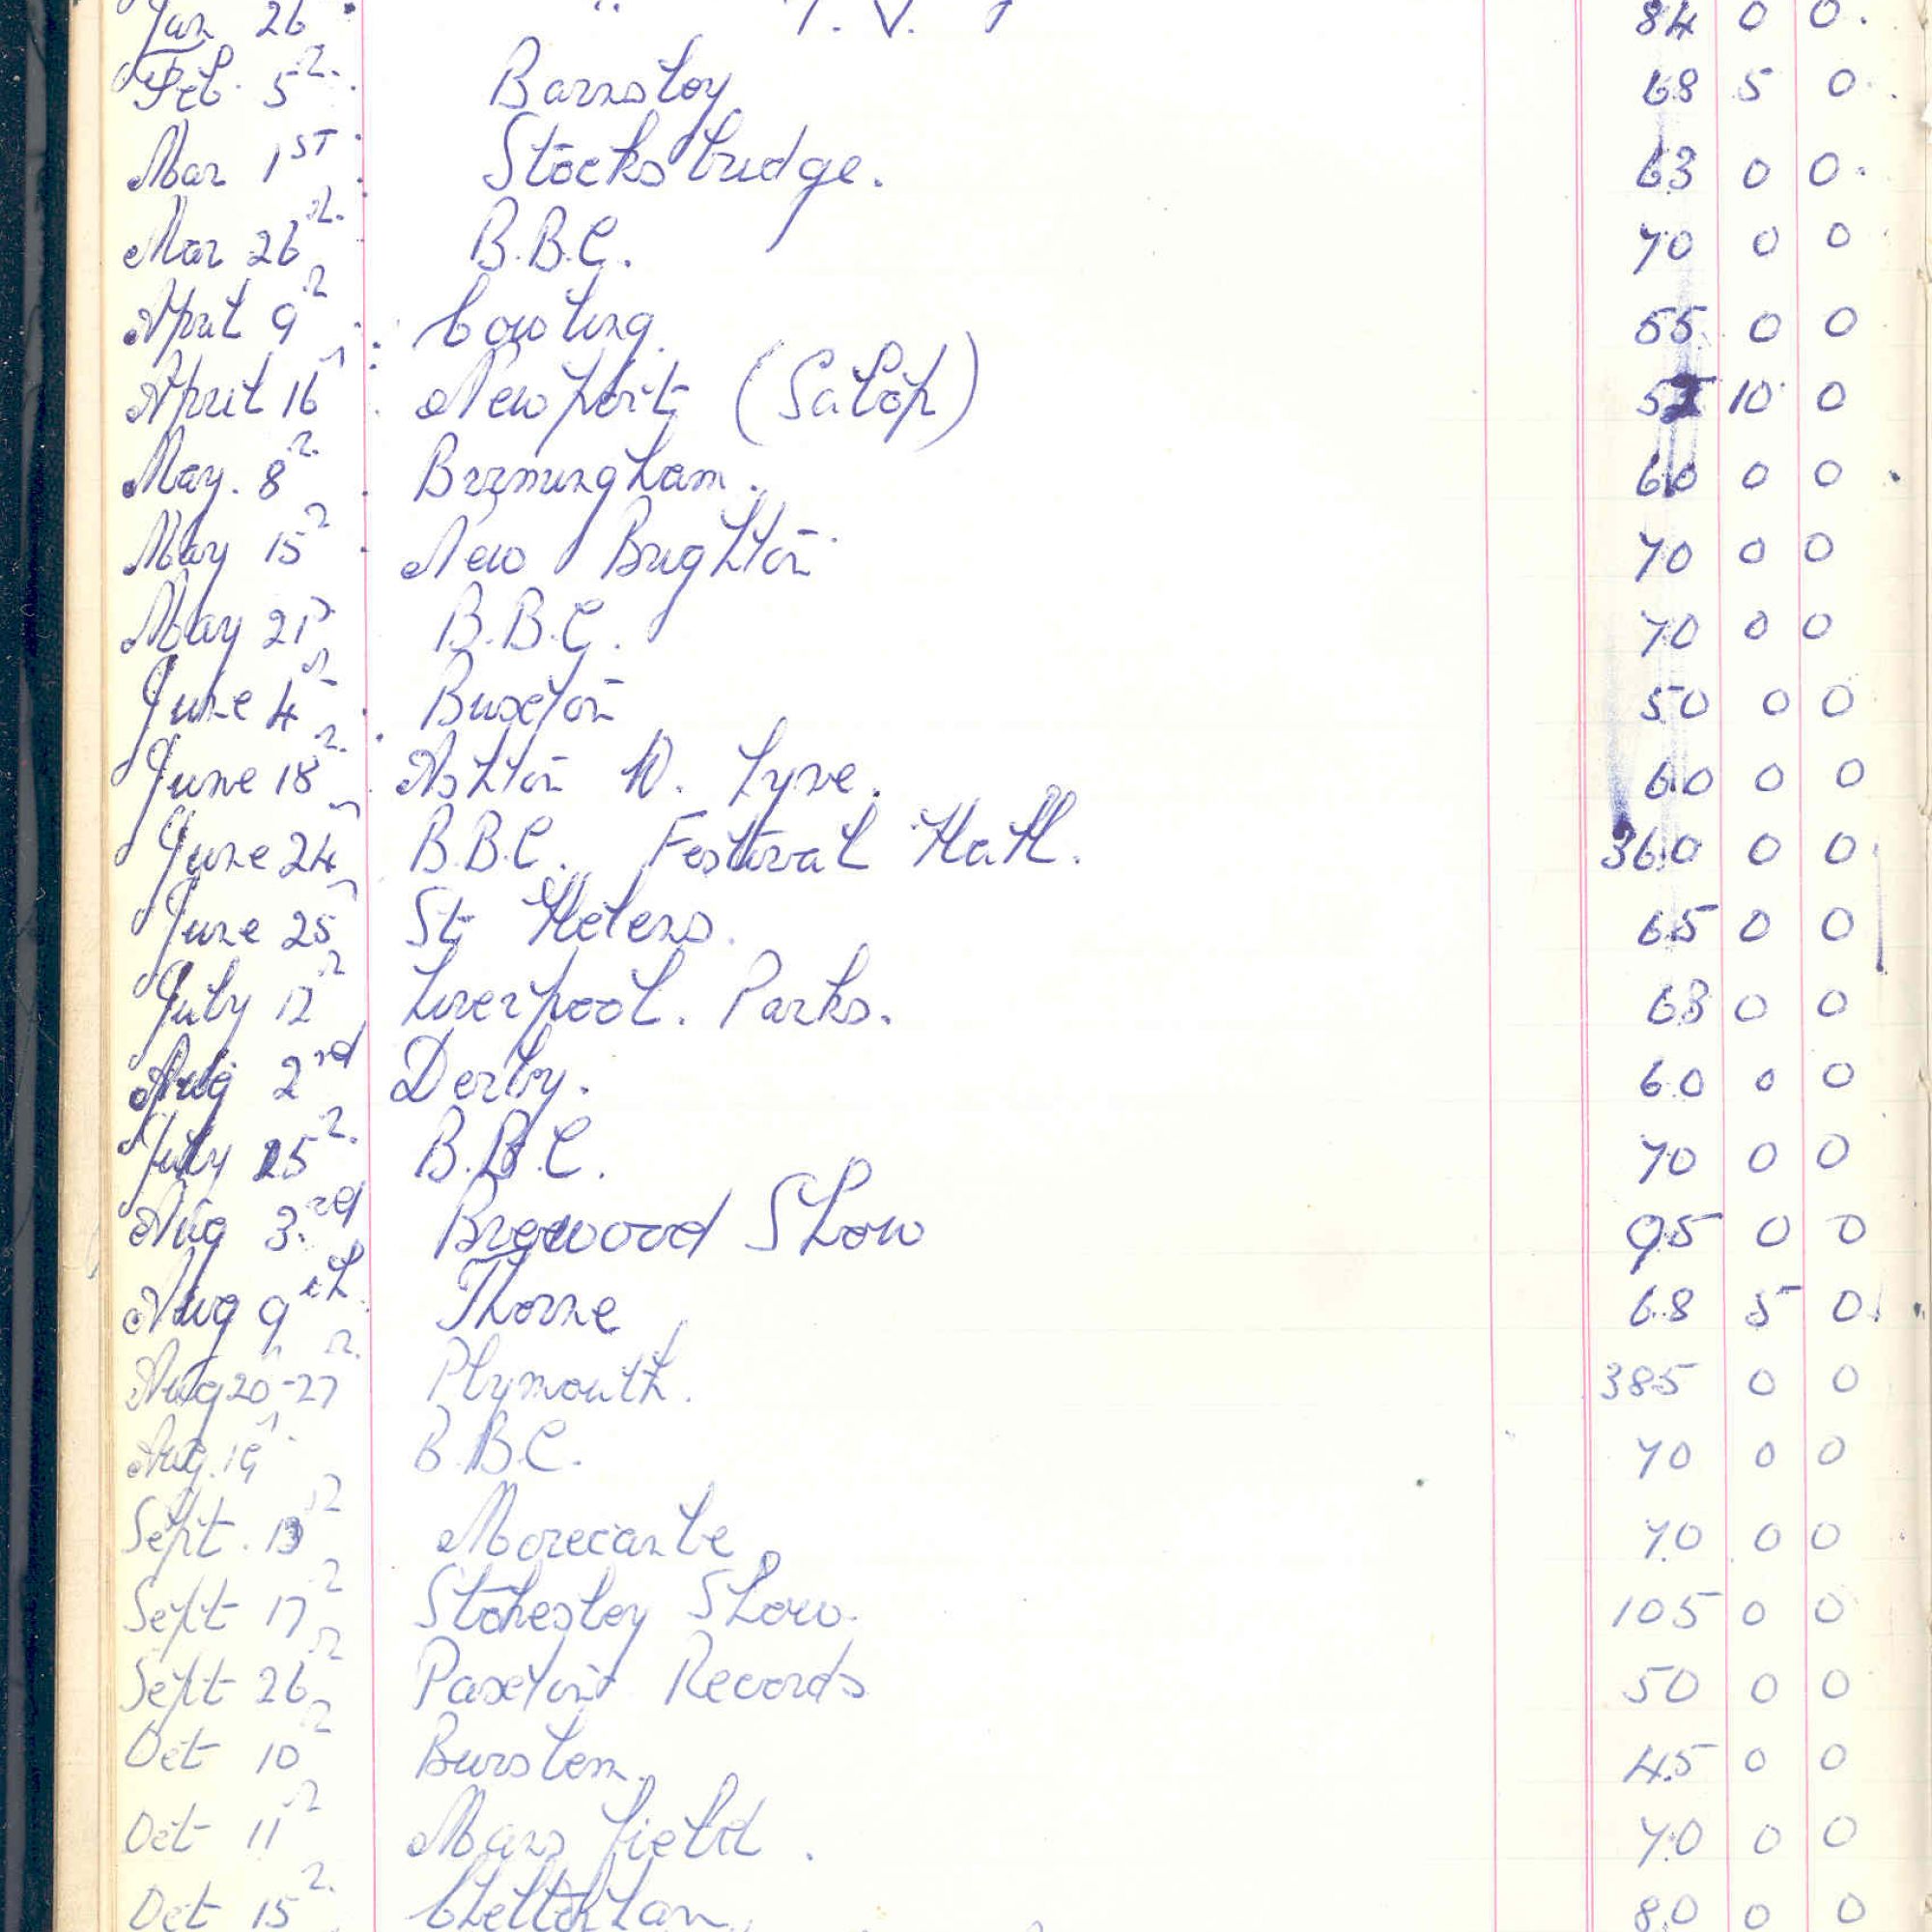 Jan 26 " T.V. 84 0 0.
Feb. 5th. Barnsley 68 5 0.
Mar 1ST Stocksbridge. 63 0 0.
Mar 26th. B.B.C. 70 0 0
April 9th Cowling. 55 0 0
April 16th Newport (Salop) 10 0
May. 8th. Birmingham. 60 0 0
May 15th New Brighton 70 0 0
May 21st B.B.C. 70 0 0
June 4th Buxton 50 0 0
June 18th. Ashton U. Lyne. 60 0 0
June 24th B.B.C. Festival Hall. 360 0 0
June 25th St Helens. 65 0 0
July 12th Liverpool. Parks. 63 0 0
Aug 2nd Derby. 60 0 0
July 25th. B.B.C. 70 0 0
Aug 3.rd Brewood Show 95 0 0
Aug 9th. Thorne 68 5 0
Aug 20th-27th. Plymouth. 385 0 0
Aug. 19th B.B.C. 70 0 0
Sept. 13th Morecambe 70 0 0
Sept 17th Stokesley Show. 105 0 0
Sept 26th Paxton Records 50 0 0
Oct 10th Burslem. 45 0 0
Oct 11th Mansfield. 70 0 0
Oct 15th. Cheltenham. 80 0 0